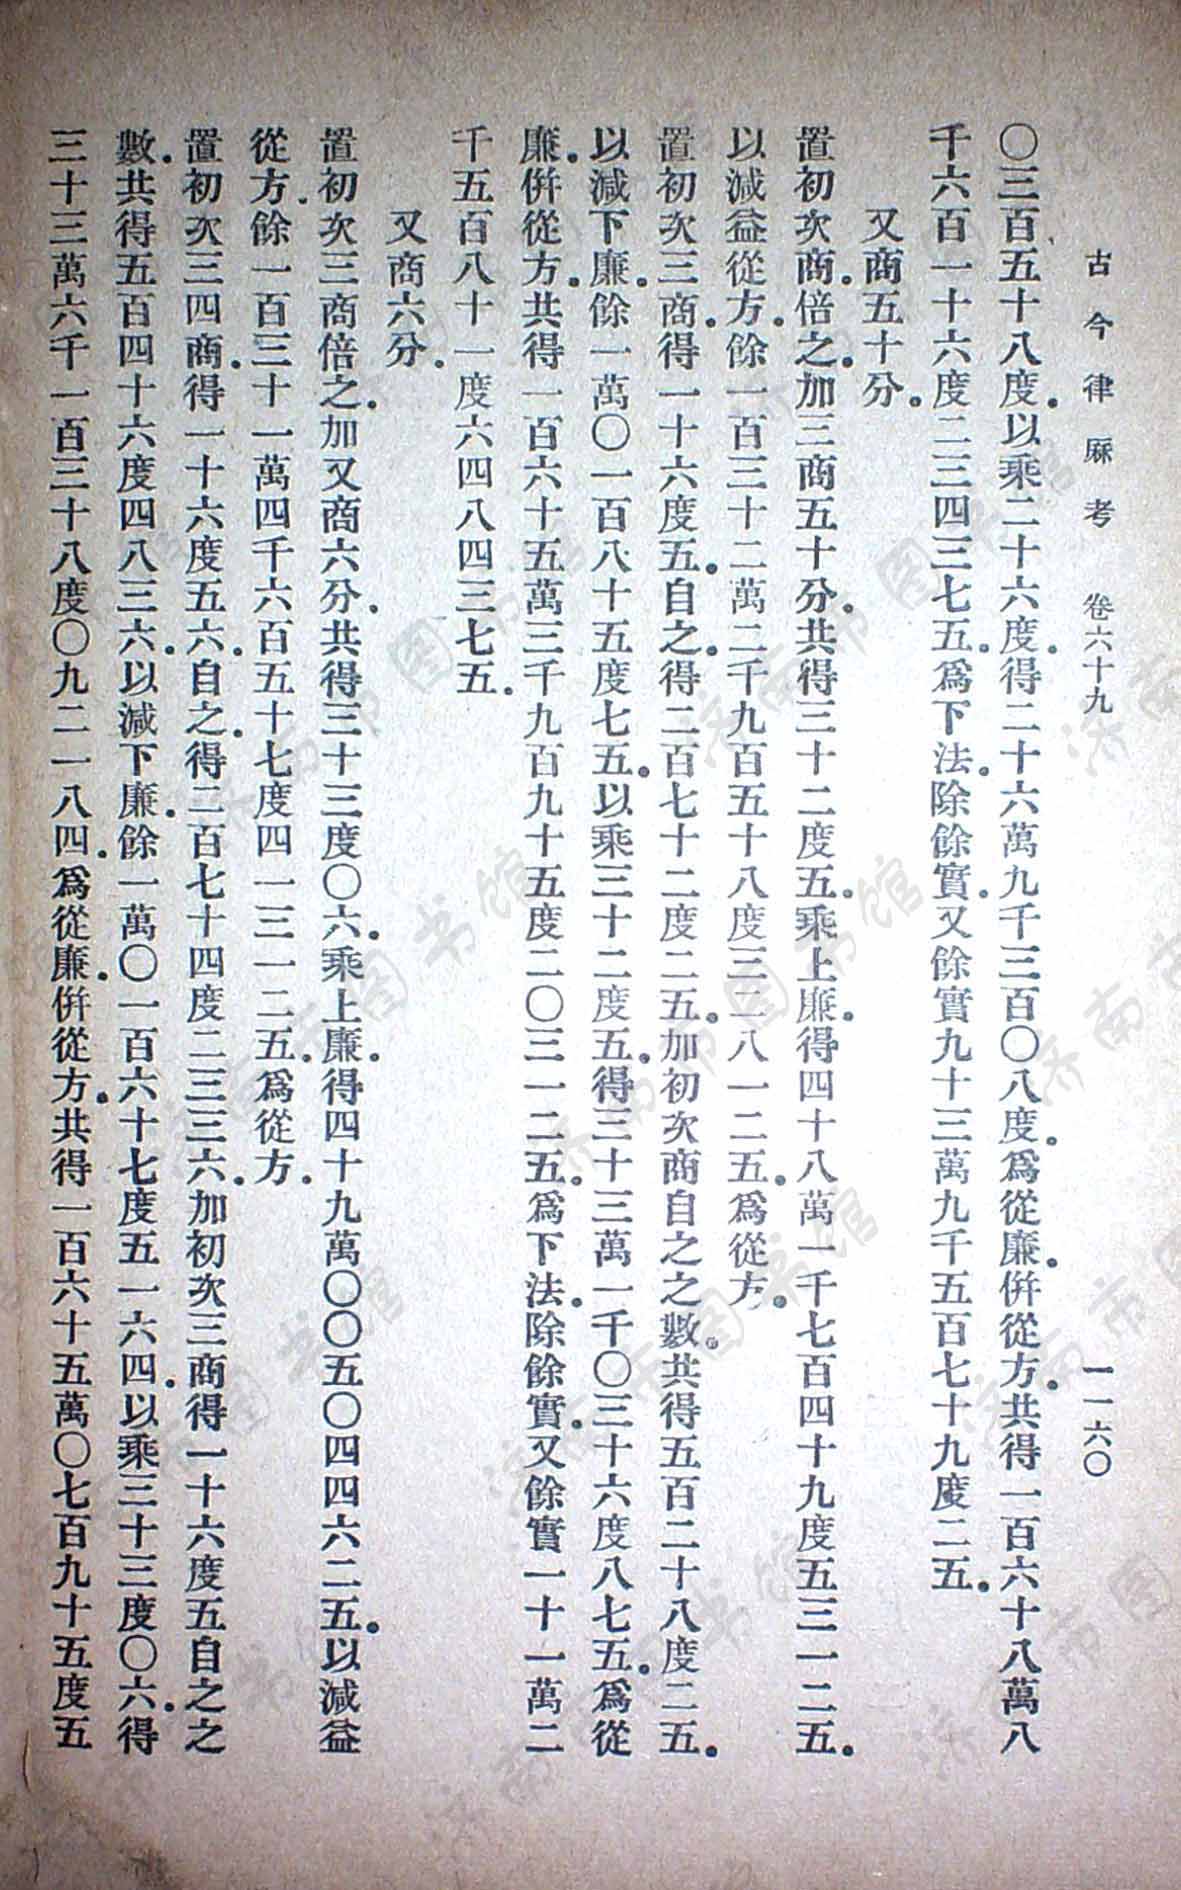 古今律厤考 卷六十九 一一六〇
〇三百五十八度。以乘二十六度。得二十六萬九千三百〇八度。爲從廉。併從方。共得一百六十八萬八
千六百一十六度二三四三七五。爲下法。除餘實。又餘實九十三萬九千五百七十九度二五。
又商五十分。
置初次商。倍之。加三商五十分。共得三十二度五。乘上廉。得四十八萬一千七百四十九度五三一二五。
以減益從方。餘一百三十二萬二千九百五十八度三二八一二五。爲從方。
置初次三商。得一十六度五。自之。得二百七十二度二五。加初次商自之之數。共得五百二十八度二五。
以減下廉。餘一萬〇一百八十五度七五。以乘三十二度五。得三十三萬一千〇三十六度八七五。爲從
廉。併從方。共得一百六十五萬三千九百九十五度二〇三一二五。爲下法。除餘實。又餘實一十一萬二
千五百八十一度六四八四三七五。
又商六分。
置初次三商倍之。加又商六分。共得三十三度〇六。乘上廉。得四十九萬〇〇五〇四四六二五。以減益
從方。餘一百三十一萬四千六百五十七度四一三一二五。爲從方。
置初次三四商。得一十六度五六。自之。得二百七十四度二三三六。加初次三商得一十六度五自之之
數。共得五百四十六度四八三六。以減下廉。餘一萬〇一百六十七度五一六四。以乘三十三度〇六。得
三十三萬六千一百三十八度〇九二一八四。爲從廉。併從方。共得一百六十五萬〇七百九十五度五